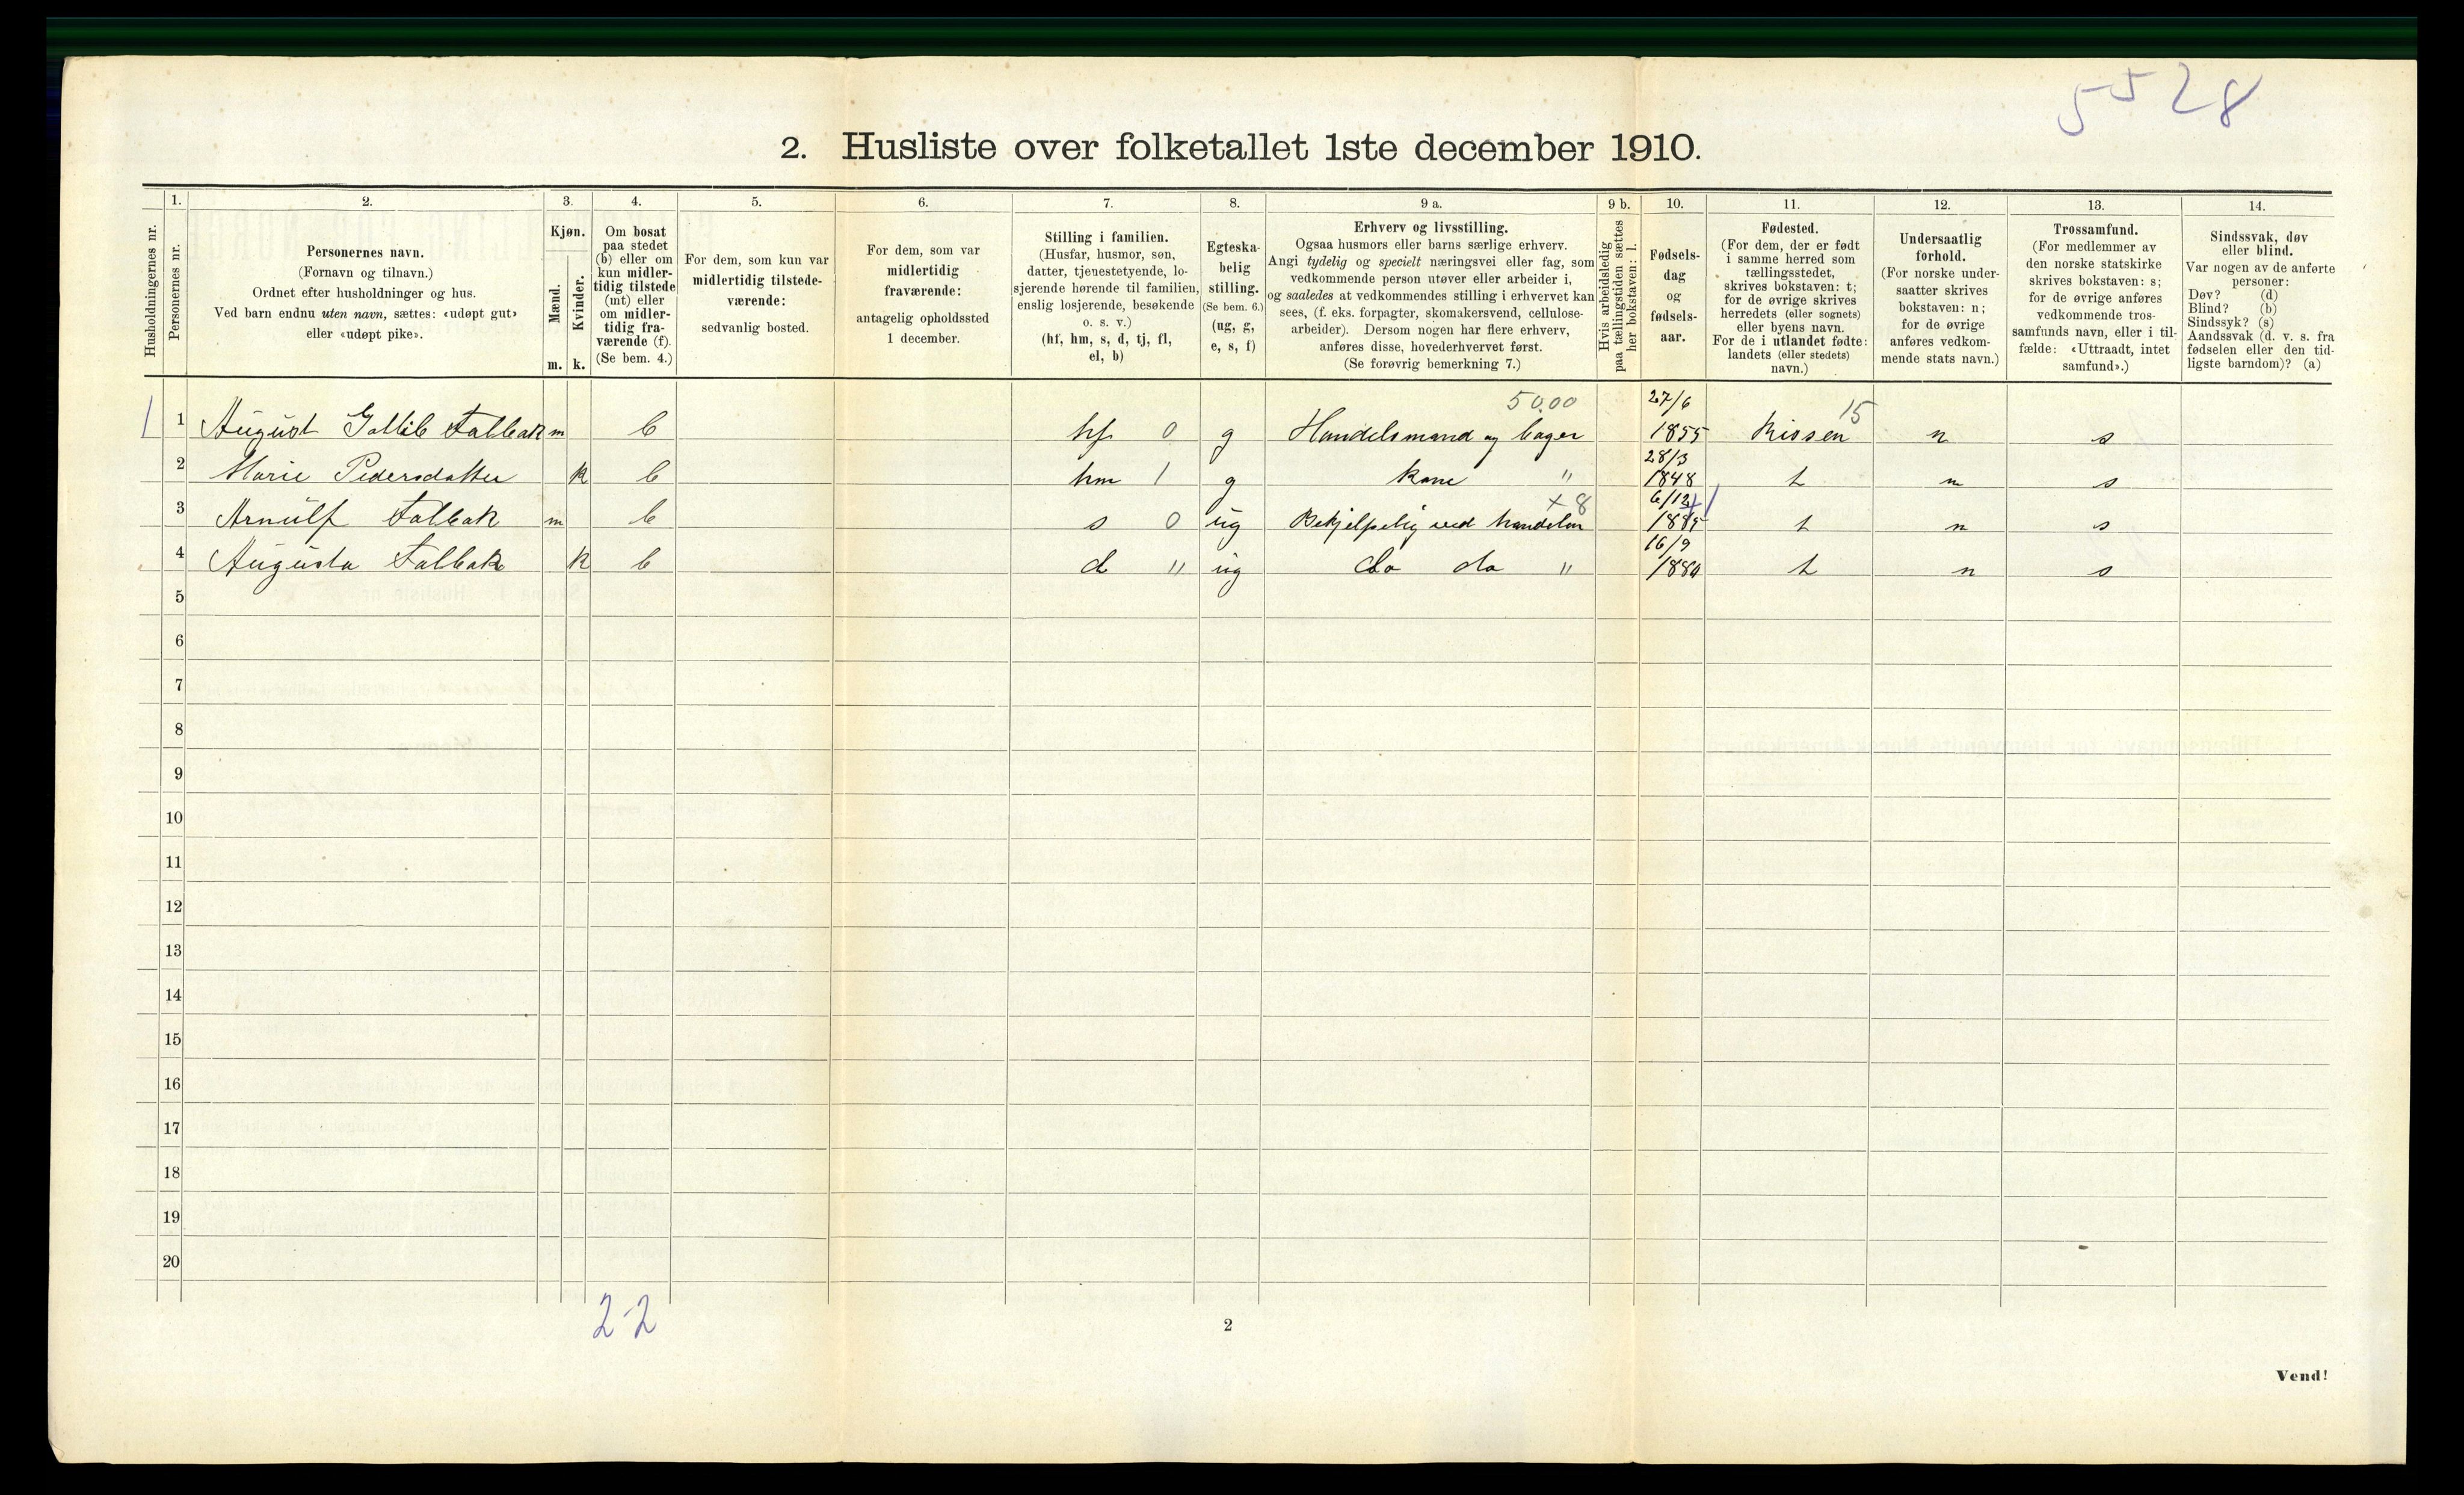 5528
2. Husliste over folketallet 1ste december 1910.
Husholdningernes nr.
1.
Personernes nr.
2.
Personernes navn.
(Fornavn og tilnavn.)
Ordnet efter husholdninger og hus.
Ved barn endnu uten navn, sættes: «udøpt gut»
eller «udøpt pike».
3.
Kjøn.
Mænd.
Kvinder.
m. k.
4.
Om bosat
paa stedet
(b) eller om
kun midler-
tidig tilstede
(mt) eller
om midler-
tidig fra-
værende (f).
(Se bem. 4.)
5.
For dem, som kun var
midlertidig tilstede-
værende:
sedvanlig bosted.
6.
For dem, som var
midlertidig
fraværende:
antagelig opholdssted
1 december.
7.
Stilling i familien.
(Husfar, husmor, søn,
datter, tjenestetyende, lo-
sjerende hørende til familien,
enslig losjerende, besøkende
o. s. v.)
(hf, hm, s, d, tj, fl,
el, b)
8.
Egteska-
belig
stilling.
(Se bem. 6.)
(ug, g,
e, s, f)
9 a.
Erhverv og livsstilling.
Ogsaa husmors eller barns særlige erhverv.
Angi tydelig og specielt næringsvei eller fag, som
vedkommende person utøver eller arbeider i,
og saaledes at vedkommendes stilling i erhvervet kan
sees, (f. eks. forpagter, skomakersvend, cellulose-
arbeider). Dersom nogen har flere erhverv,
anføres disse, hovederhvervet først.
(Se forøvrig bemerkning 7.)
9 b.
Hvis arbeidsledig
paa tællingstiden sættes
her bokstaven: l.
10.
Fødsels-
dag
og
fødsels-
aar.
11.
Fødested.
(For dem, der er født
i samme herred som
tællingsstedet,
skrives bokstaven: t;
for de øvrige skrives
herredets (eller sognets)
eller byens navn.
For de i utlandet fødte:
landets (eller stedets)
navn.)
12.
Undersaatlig
forhold.
(For norske under-
saatter skrives
bokstaven: n;
for de øvrige
anføres vedkom-
mende stats navn.)
13.
Trossamfund.
(For medlemmer av
den norske statskirke
skrives bokstaven: s;
for de øvrige anføres
vedkommende tros-
samfunds navn, eller i til-
fælde: «Uttraadt, intet
samfund».)
14.
Sindssvak, døv
eller blind.
Var nogen av de anførte
personer:
Døv? (d)
Blind? (b)
Sindssyk? (s)
Aandssvak (d. v. s. fra
fødselen eller den tid-
ligste barndom)? (a)
5000 27/6 15
1 1 August Gottlib Falbak m b hf 0 g Handelsmand og bager 1855 Rissen n s
28/3
2 Marie Pedersdatter k b hm 1 g kone " 1848 t n s
+8 6/12
3 Arnulf Falbak m b s 0 ug Behjelpelig ved handelen 1885 t n s
16/9
4 Augusta Falbak k b d " ug do do " t n s
5
6
7
8
9
10
11
12
13
14
15
16
17
18
19
20
2-2
2
Vend!